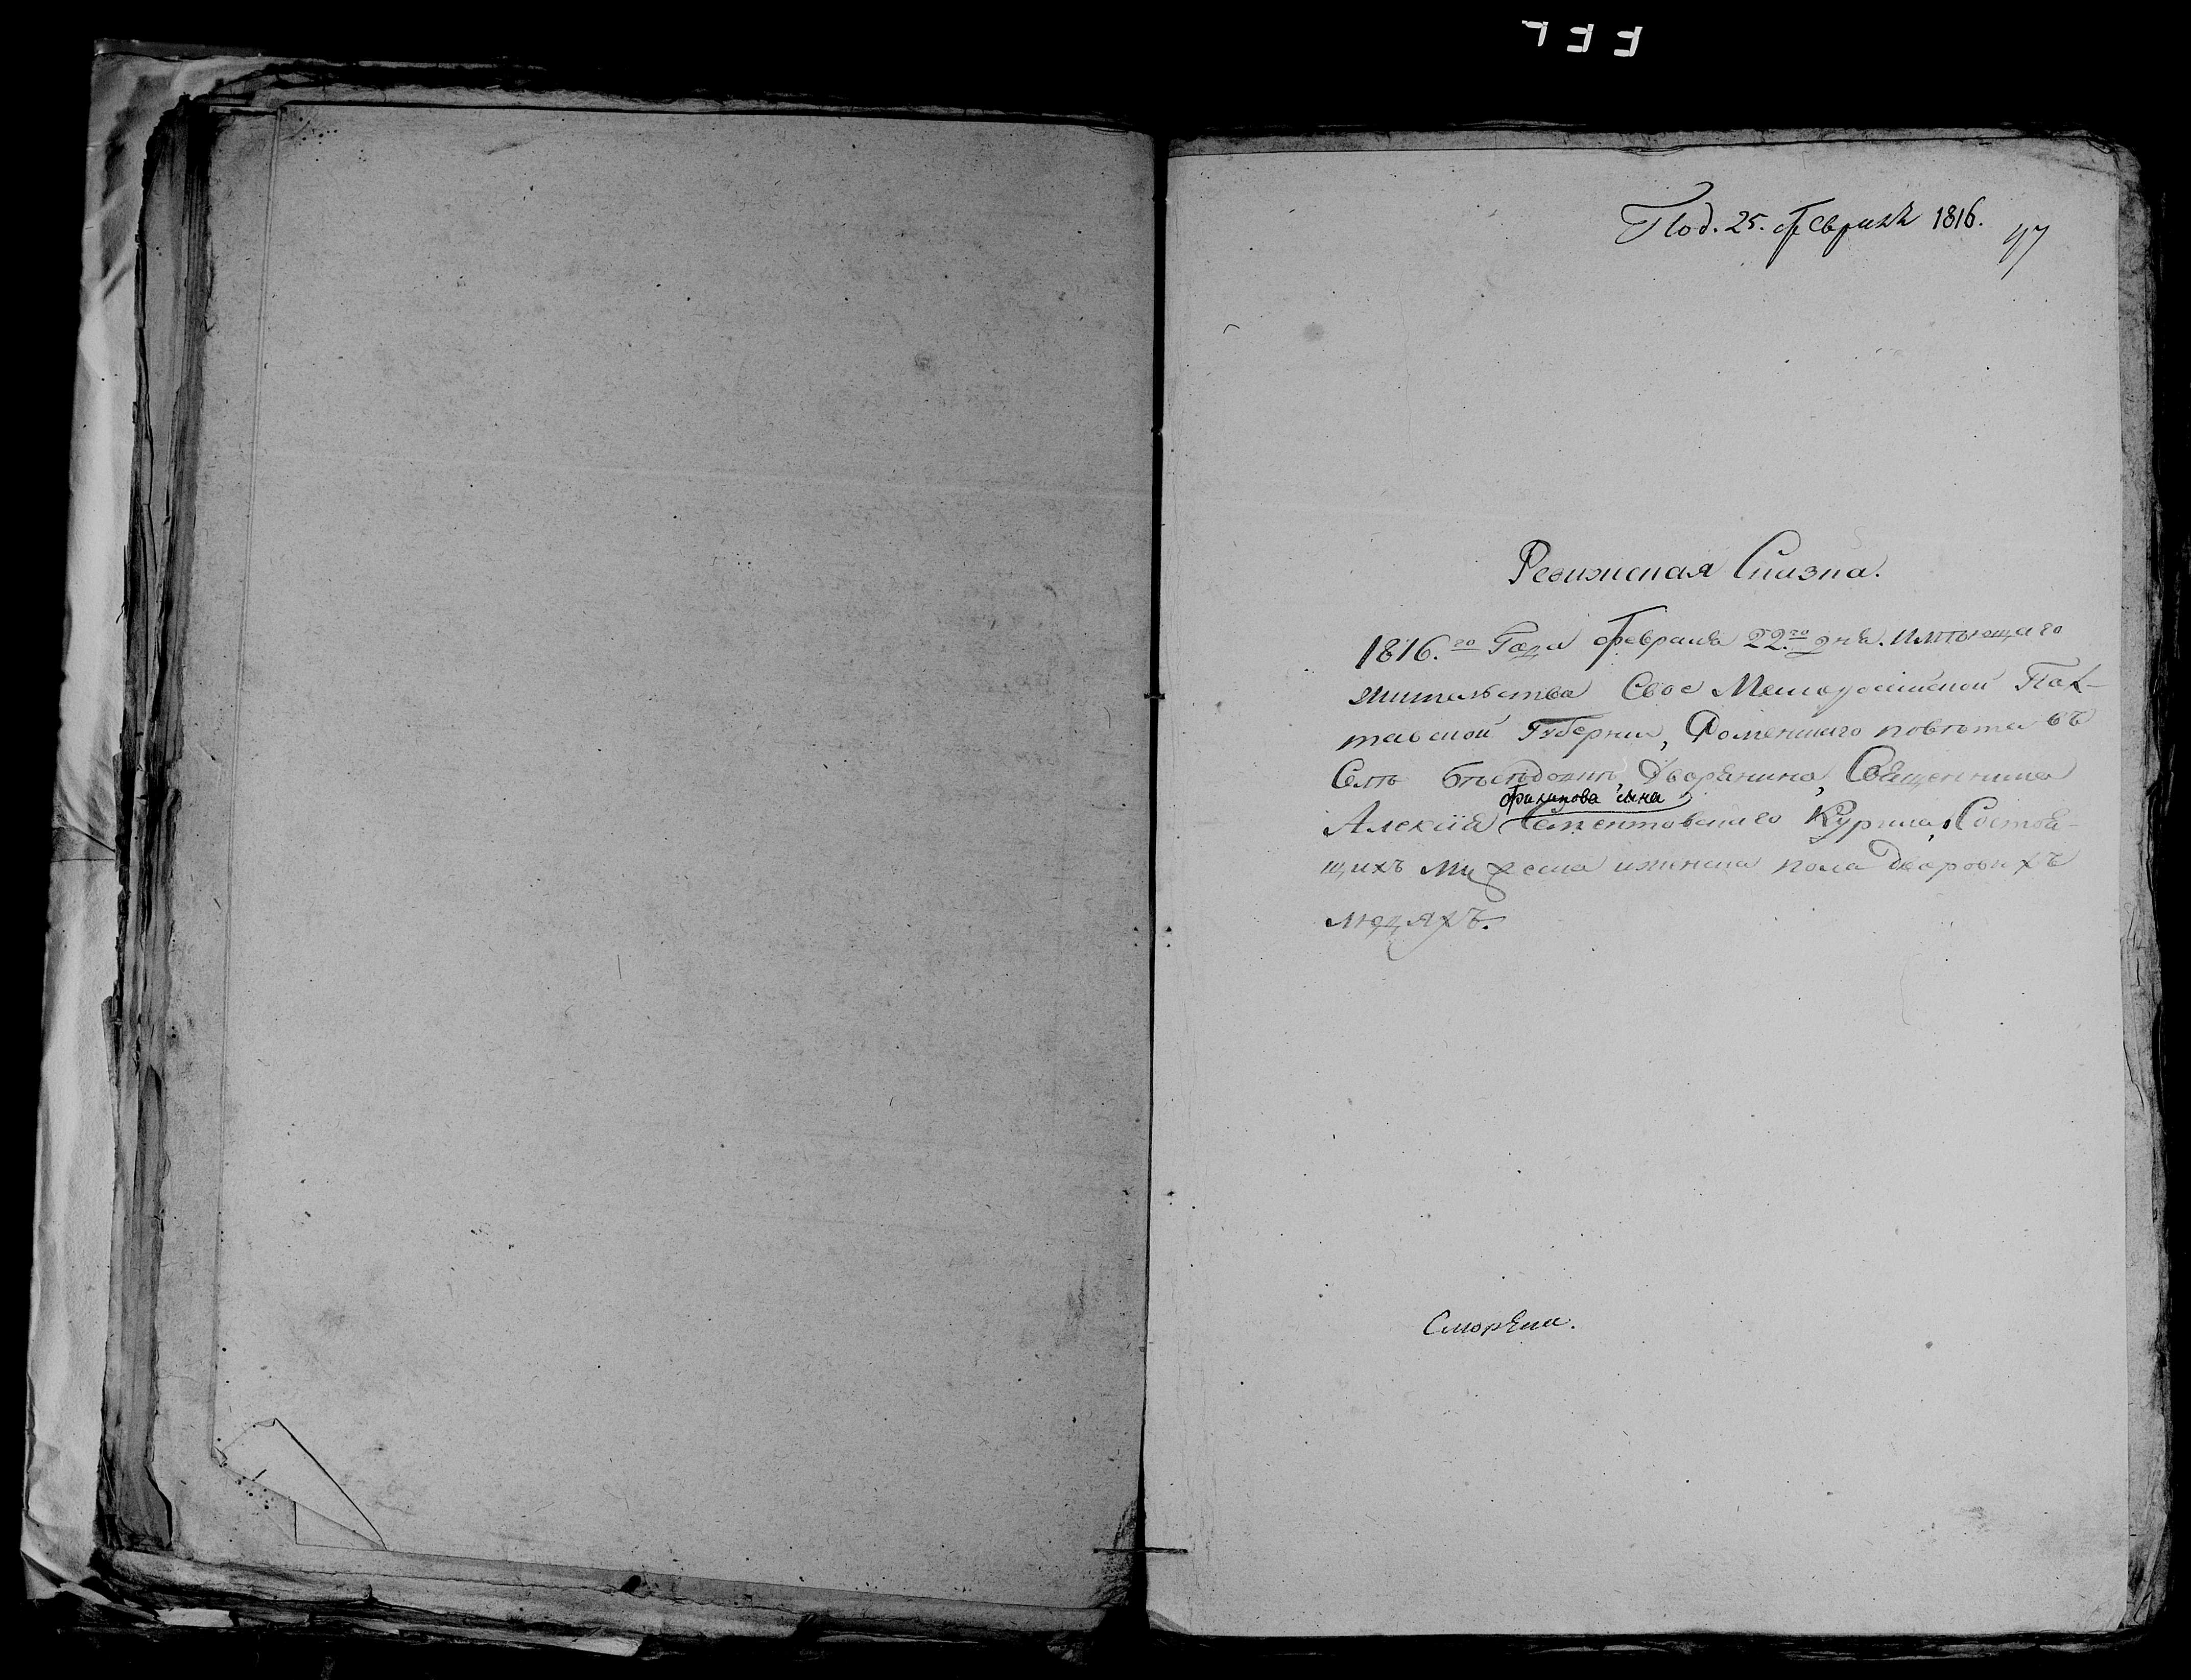 Под. 25. февраля 1816.
47
Ревижская Сказка.
1816.го Года февраля 22.го дня. имѣющаго
жительства Свое Малороссийской Пол-
тавской Губернии, Роменского повѣта въ
Селѣ Дворянина, Священника
Филипова сина
Алексія Курила, Состоя-
щихъ мужеска и женска пола Дворовихъ
людяхъ.